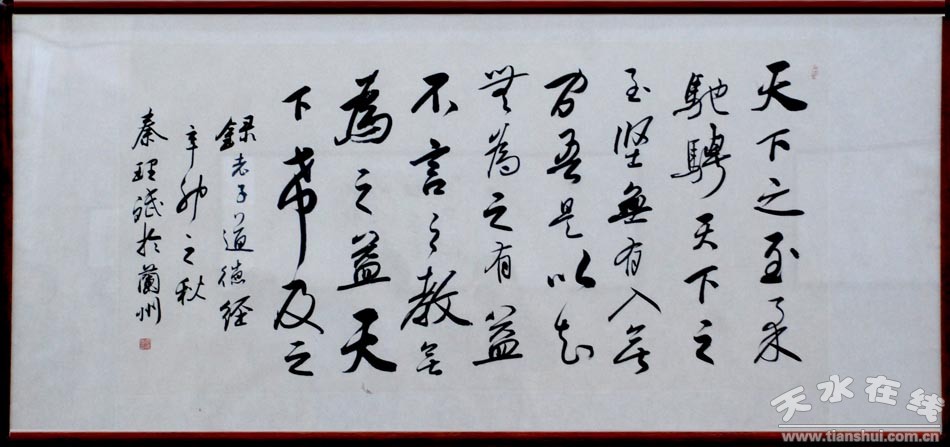 天下之至柔
馳騁天下之
至堅無有入無
間吾是以知
無為之有益
不言之教無
為之益天
下希及之
錄老子道德經
辛卯之秋
秦理斌於蘭州
天水在线
www.tianshui.com.cn